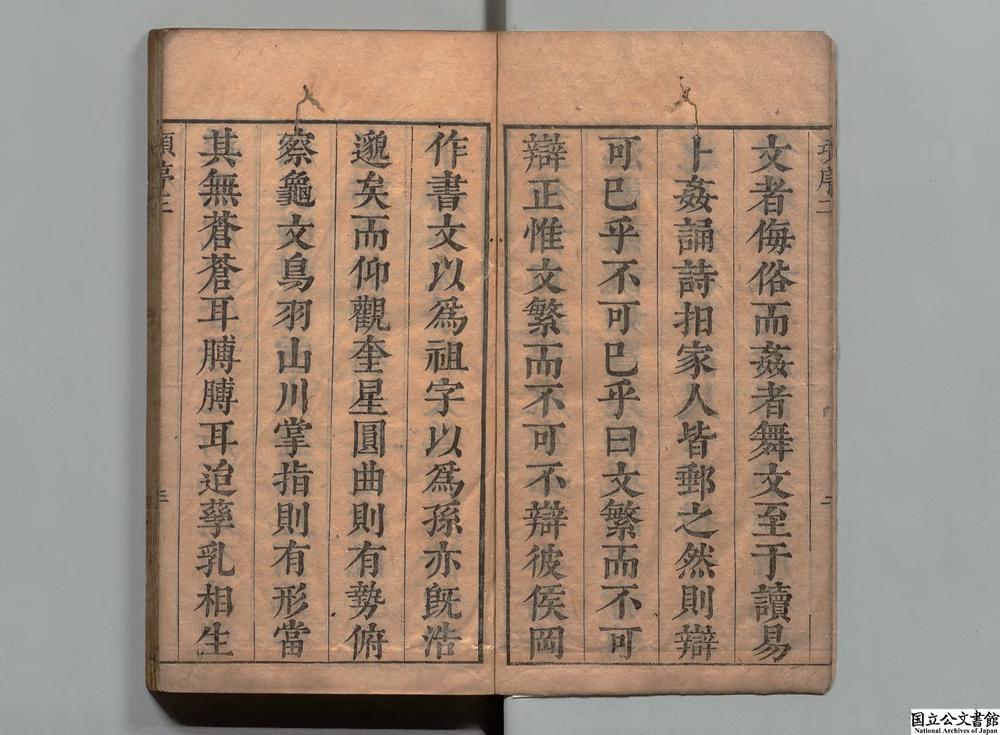 文者侮俗而姦者舞文至于讀易
卜姦誦詩抇家人皆郵之然則辯
可已乎不可已乎曰文繁而不可
辯正惟文繁而不可不辯彼侯岡
作書文以爲祖字以爲孫亦旣浩
邈矣而仰觀奎星圓曲則有勢俯
察龜文鳥羽山川掌指則有形當
其無蒼蒼耳膊膊耳迨孳乳相生
三
国立公文書館
National Archives of Japan